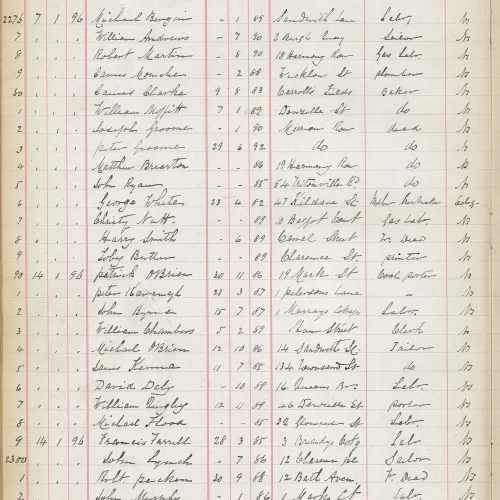 2276 7 1 96 Michael Bergin - 1 89 Sandwith Lane Labr. No
7 . . . William Andrews - 7 90 2 Burgh Quay Sailor No
8 . . . Robert Martin - 8 90 18 Harmony Row Gas Labr. No
9 . . . James - 2 88 St plumber No
80 . . . James Clarke 9 8 83 Baker No
1 . . . William Moffitt 7 1 89 Denzille St do No
2 . . . Joseph Groome - 1 90 Merrion Row dead No
3 . . . peter Groome 29 6 92 do do
4 . . . Matthew Brearton - - 86 19 Harmony Row do
5 . . . John Ryan - - 85 54 do No
6 . . . George White 23 4 82 47 Kildare St.
7 . . . Christy Nutt - - 89 10 Court Gas Labr. No
8 . . . Harry Smith - 6 89 Canal Street Dead No
9 . . . Toby Butler - - 89 Clarence St. printer No
90 14 1 96 patrick O'Brien 20 11 86 19 Mark St Coal porter No
1 . . . peter Kavanagh 23 3 87 1 Lane " No
2 . . . John Byrne 15 7 87 1 Labr. No
3 . . . William Chambers 5 2 89 Street Clerk No
4 . . . Michael O'Brien 12 10 86 14 Sandwith St. Tailor No
5 . . . James 11 7 85 134 Townsend St do No
6 . . . David Daly - 10 88 16 Labr. No
7 . . . William 12 11 89 46 Denzille St porter No
8 . . . Michael Flood - - 85 32 Labr. No
9 14 1 96 Francis Farrell 28 3 85 3 Cotg Labr No
2300 . . . John Lynch - 7 86 12 Clarence pl Sailor No
1 . . . Robt. 30 9 88 12 Bath Aven. Dead No
2 . . . John Murphy - 1 86 1 Marks Ct Labr. No